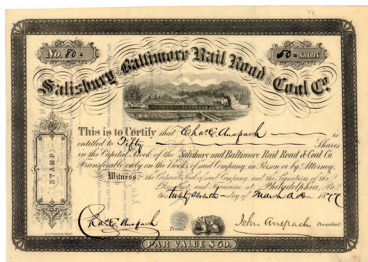 No. 80
50 Shares
Salisbury & Baltimore Rail Road & Coal Co.
This is to Certify that Chas. E. Anspach is
entitled to Fifty Shares
in the Capital Stock of the Salisbury and Baltimore Rail Road & Coal Co.
Transferable only on the Books of said Company, in Person or by Attorney.
Witness, the Corporate Seal of said Company and the Signatures of the
President and Treasurer at Philadelphia, Pa.
this day of March A.D. 1877
STAMP
Chas. E. Anspach Treasr.
John Anspach President
PAR VALUE $50.